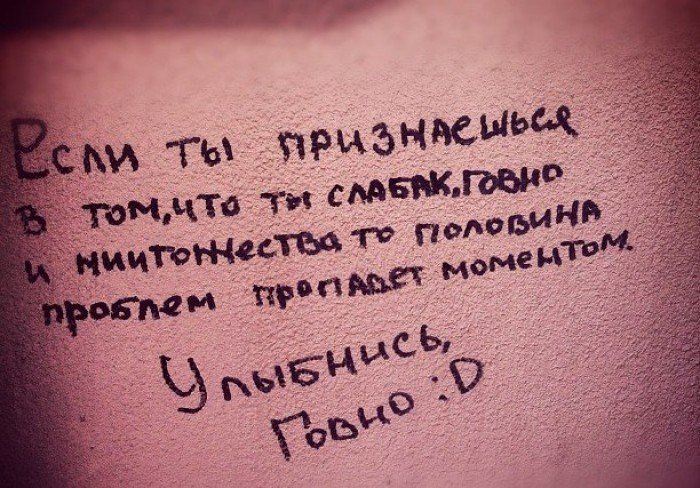 Если ты признаешься
в том, что ты слабак, говно
и ничтожества то половина
проблем пропадет моментом.
Улыбнись,
Говно :D